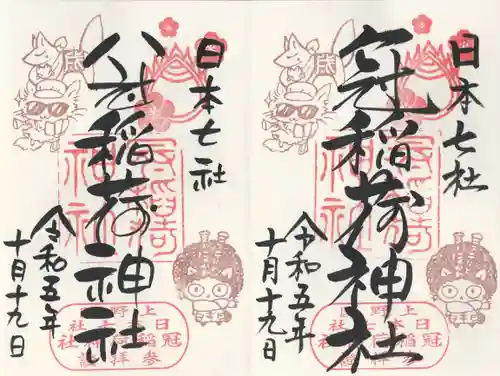 日本七社
冠稲荷神社
令和五年
十月十九日
上野国
日本七社
冠稲荷神社
参拝
日本七社
冠稲荷神社
令和五年
十月十九日
上野国
日本七社
冠稲荷神社
参拝